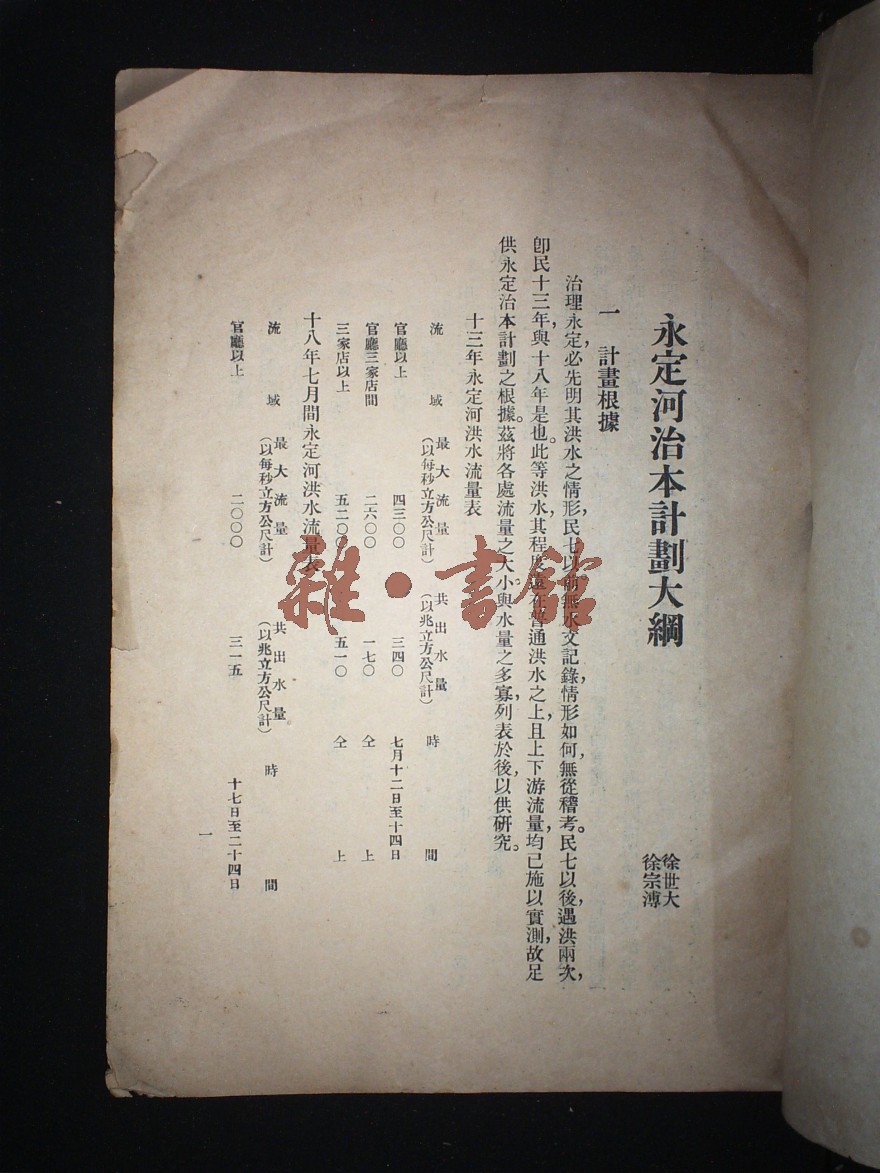 永定河治本計劃大綱
徐世大
徐宗溥
一　計畫根據
治理永定，必先明其洪水之情形，民七以前無水文記錄，情形如何，無從稽考。民七以後，遇洪兩次，
卽民十三年，與十八年是也。此等洪水，其程度遠在普通洪水之上，且上下游流量，均已施以實測，故足
供永定治本計劃之根據。茲將各處流量之大小，與水量之多寡，列表於後，以供研究。
十三年永定河洪水流量表
流域　最大流量（以每秒立方公尺計）　共出水量（以兆立方公尺計）　時間
官廳以上　四三〇〇　三四〇　七月十二日至十四日
官廳三家店間　二六〇〇　一七〇　仝上
三家店以上　五二〇〇　五一〇　仝上
十八年七月間永定河洪水流量表
流域　最大流量（以每秒立方公尺計）　共出水量（以兆立方公尺計）　時間
官廳以上　二〇〇〇　三一五　十七日至二十四日
一
雜·書館